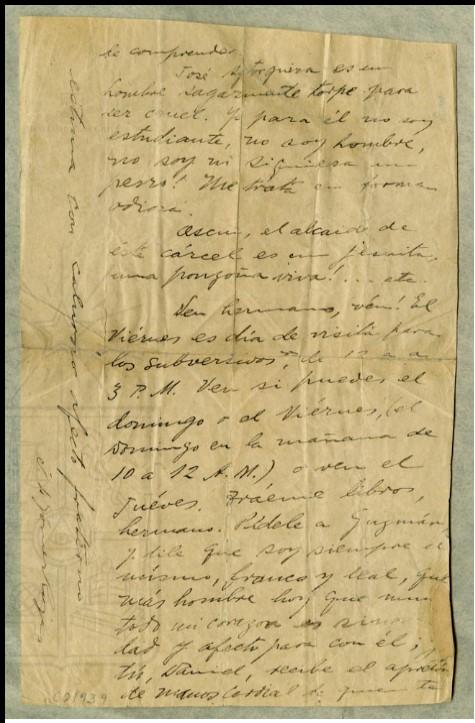 de comprender.
José Astorquiza es un
hombre sagazmente torpe para
ser cruel. Y para él no soy
estudiante, no soy hombre,
no soy ni siquiera un
perro! Me trata en forma
odiosa.
el alcaide de
esta cárcel es un jesuita,
una ponzoña viva! ... etc.
Ven hermano, vén! El
Viérnes es dia de visita para
los subversivos, de 12 a
3 P.M. Ven si puedes el
domingo o el Viérnes, (el
Domingo en la mañana de
10 a 12 A.M.) o ven el
Juéves. Tráeme libros,
hermano. Pídele a Guzmán
y dile que soy siempre el
mismo, franco y leal, que
más hombre hoy que nunca
todo mi corazon es
y afecto para con él;
tú, Daniel, recibe el apretón
de manos cordial de quien te
estima con caluroso afecto fraterno